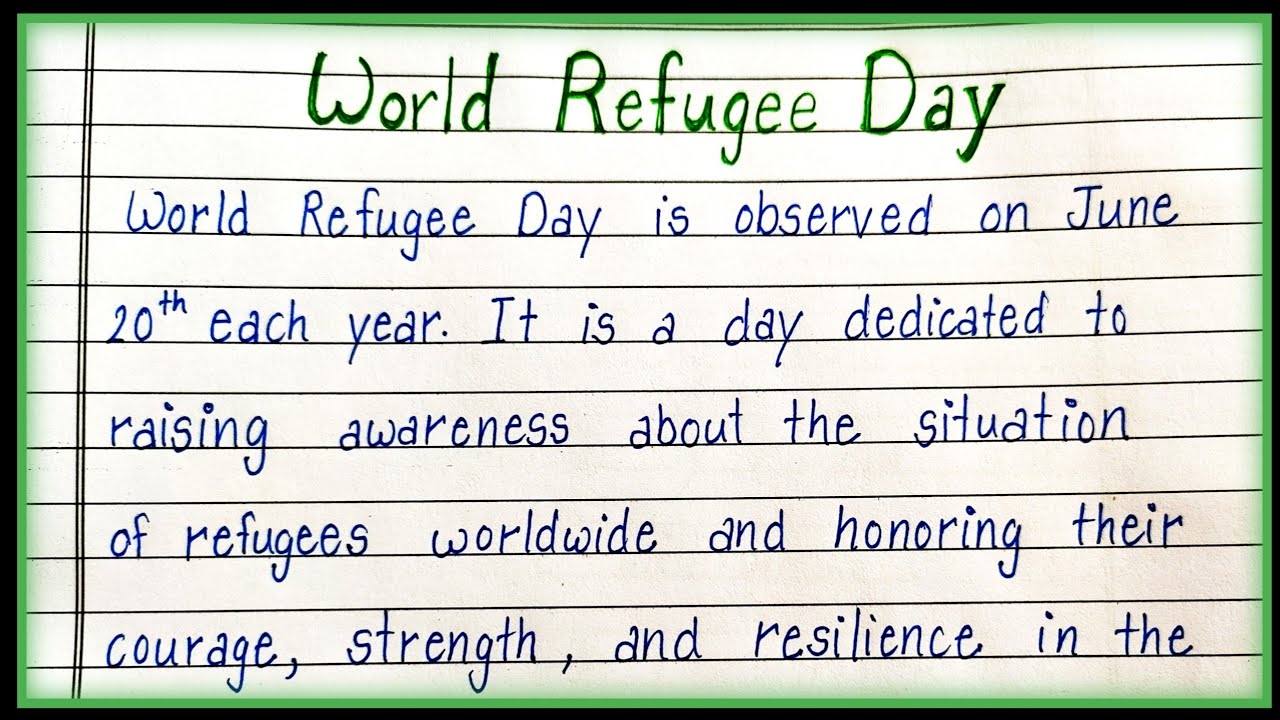 World Refugee Day
World Refugee Day is observed on June
20th each year. It is a day dedicated to
raising awareness about the situation
of refugees worldwide and honoring their
courage, strength, and resilience in the